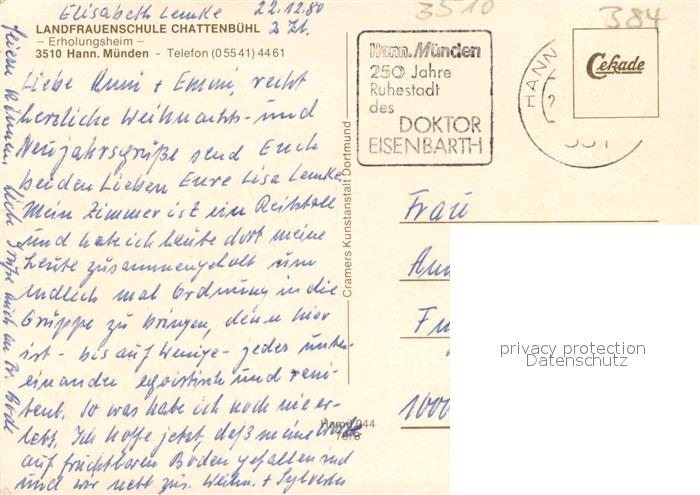 Elisabeth Lemke 22.12.80
LANDFRAUENSCHULE CHATTENBÜHL z Zt.
– Erholungsheim –
3510 Hann. Münden - Telefon (05541) 4461
Liebe Anni + Emmi, recht
herzliche Weihnachts- und
Neujahrsgrüße send Euch
beiden Lieben Eure Lisa Lemke
Mein Zimmer ist ein
und habe ich heute dort meine
Leute zusammengeholt um
endlich mal Ordnung in die
Gruppe zu bringen, denn hier
ist - bis auf wenige - jeder unter-
einander egoistisch und reni-
tent. So was habe ich noch nie er-
lebt. Ich hoffe jetzt, daß meine Worte
auf fruchtbaren Boden gefallen sind
und wir nett zus. Weihn. + Sylvester
können. Liebe Grüße auch an Br. Bode
Cramers Kunstanstalt Dortmund
3510
384
Hann. Münden
250 Jahre
Ruhestadt
des
DOKTOR
EISENBARTH
HANN
Cekade
Frau
1000
privacy protection
Datenschutz